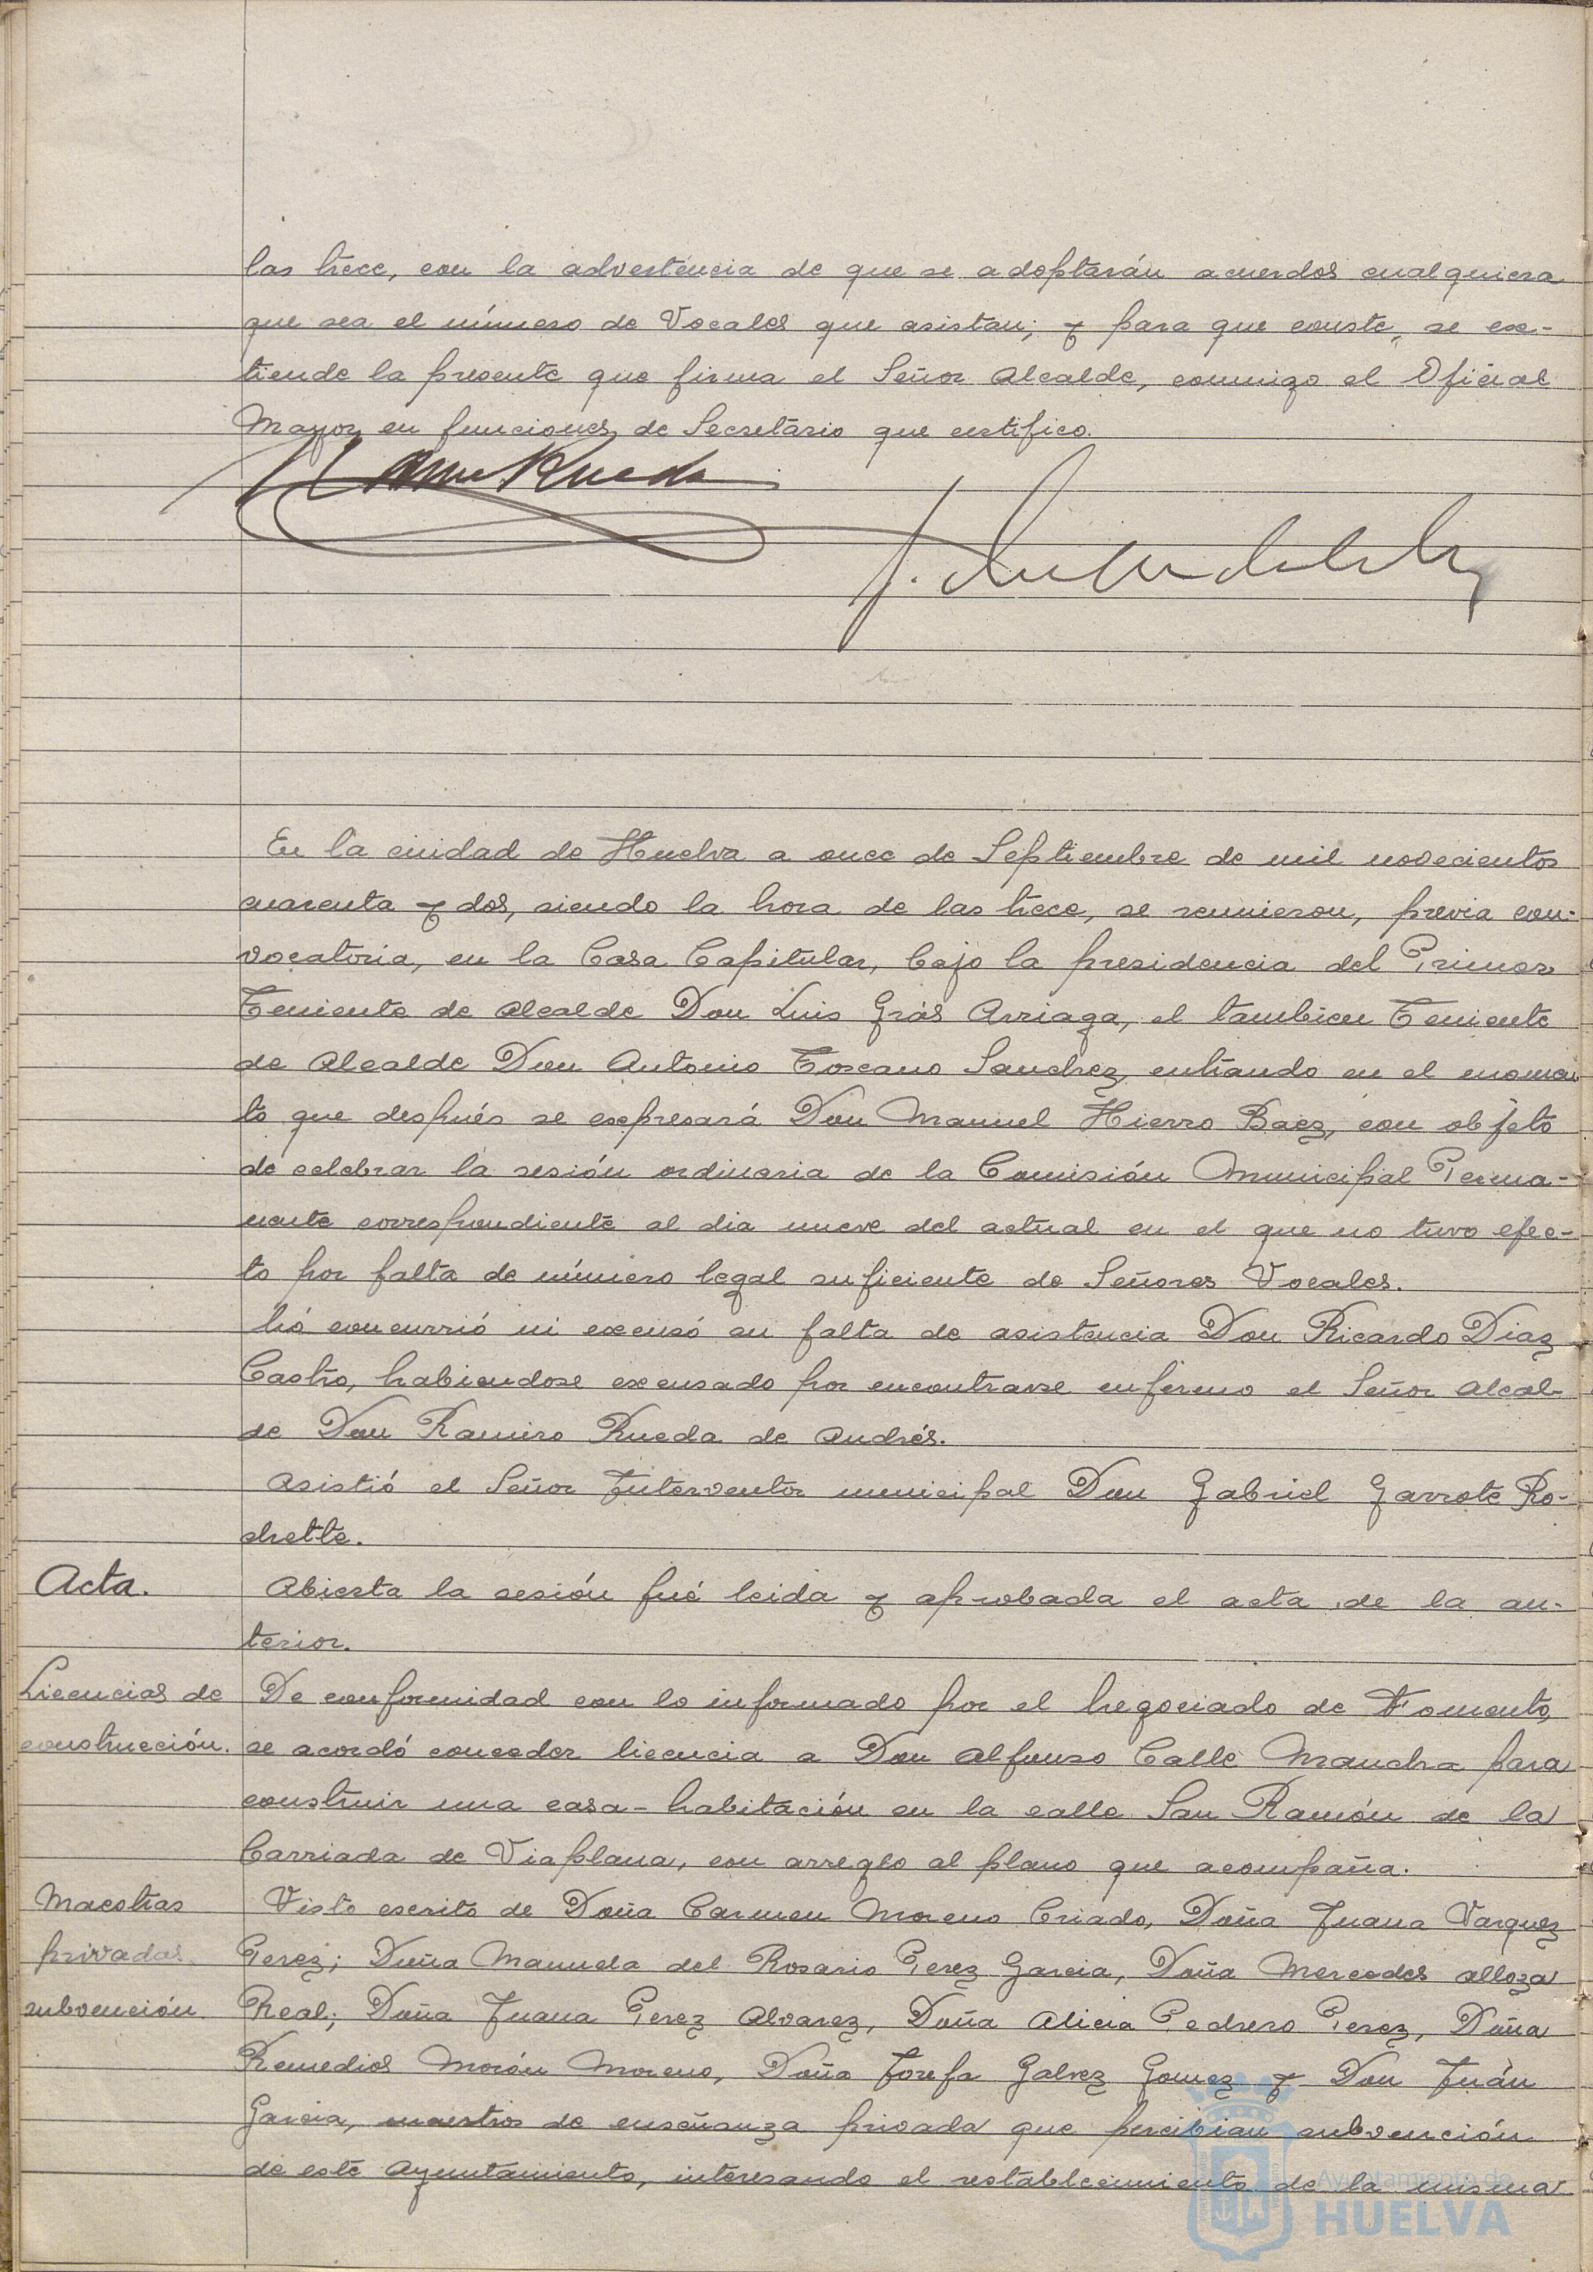 las trece, con la advertencia de que se adoptarán acuerdos cualquiera
que sea el número de Vocales que asistan; y para que conste, se ex-
tiende la presente que firma el Señor Alcalde, conmigo el Oficial
Mayor en funciones de Secretario que certifico.
En la ciudad de Huelva a once de Septiembre de mil novecientos
cuarenta y dos, siendo la hora de las trece, se reunieron, previa con-
vocatoria, en la Casa Capitular, bajo la presidencia del Primer
Teniente de Alcalde Don Luis Grás Arriaga, el tambien Teniente
de Alcalde Don Antonio Toscano Sanchez, entrando en el momen
to que después se expresará Don Manuel Hierro Baez, con objeto
de celebrar la sesión ordinaria de la Comisión Municipal Perma-
nente correspondiente al dia nueve del actual en el que no tuvo efec-
to por falta de número legal suficiente de Señores Vocales.
No concurrió ni excusó su falta de asistencia Don Ricardo Diaz
Castro, habiendose excusado por encontrarse enfermo el Señor Alcal-
de Don Ramiro Rueda de Andrés.
Asistió el Señor Interventor municipal Don Gabriel Garrote Ro-
chette.
Acta.
Abierta la sesión fué leida y aprobada el acta de la an-
terior.
Licencias de
construcción.
De conformidad con lo informado por el Negociado de Fomento,
se acordó conceder licencia a Don Alfonso Calle Mancha para
construir una casa-habitación en la calle San Ramón de la
Barriada de Viaplana, con arreglo al plano que acompaña.
Maestras
privadas
subvención.
Visto escrito de Doña Carmen Moreno Criado, Doña Juana Vazquez
Perez; Doña Manuela del Rosario Perez Garcia, Doña Mercedes Alloza
Real; Doña Juana Perez Alvarez, Doña Alicia Pedrero Perez, Doña
Remedios Morón Moreno, Doña Josefa Galvez Gomez y Don Juán
Garcia, maestros de enseñanza privada que percibian subvención
de este Ayuntamiento, interesando el restablecimiento de la misma
Ayuntamiento de
HUELVA